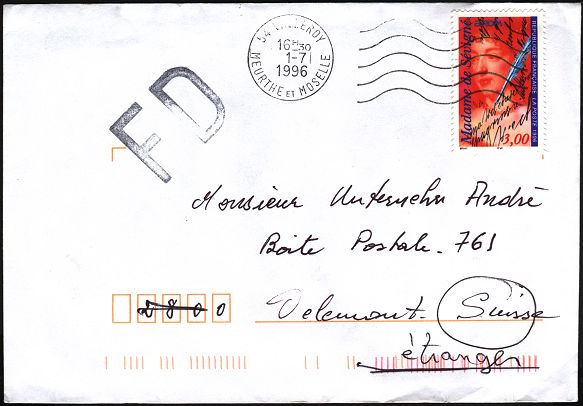 54 VILLEROY
16H30
1-7
1996
MEURTHE ET MOSELLE
Madame de Sévigné
EUROPA
RÉPUBLIQUE FRANÇAISE LA POSTE 1996
3,00
FD
Monsieur Unternehr André
Boite Postale. 761
2800 Delemont. Suisse
étranger